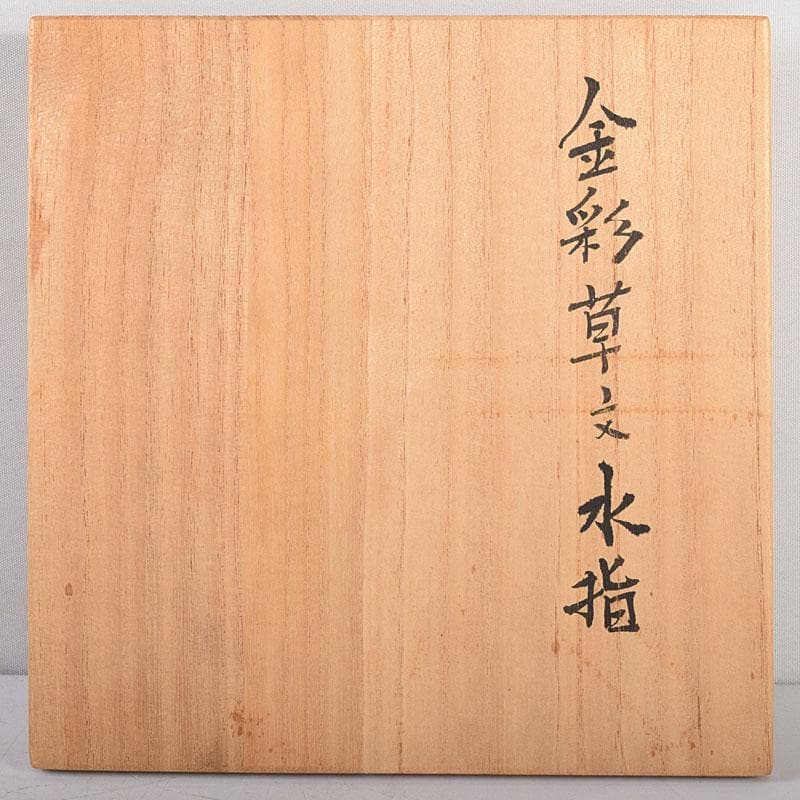 金彩草文水指